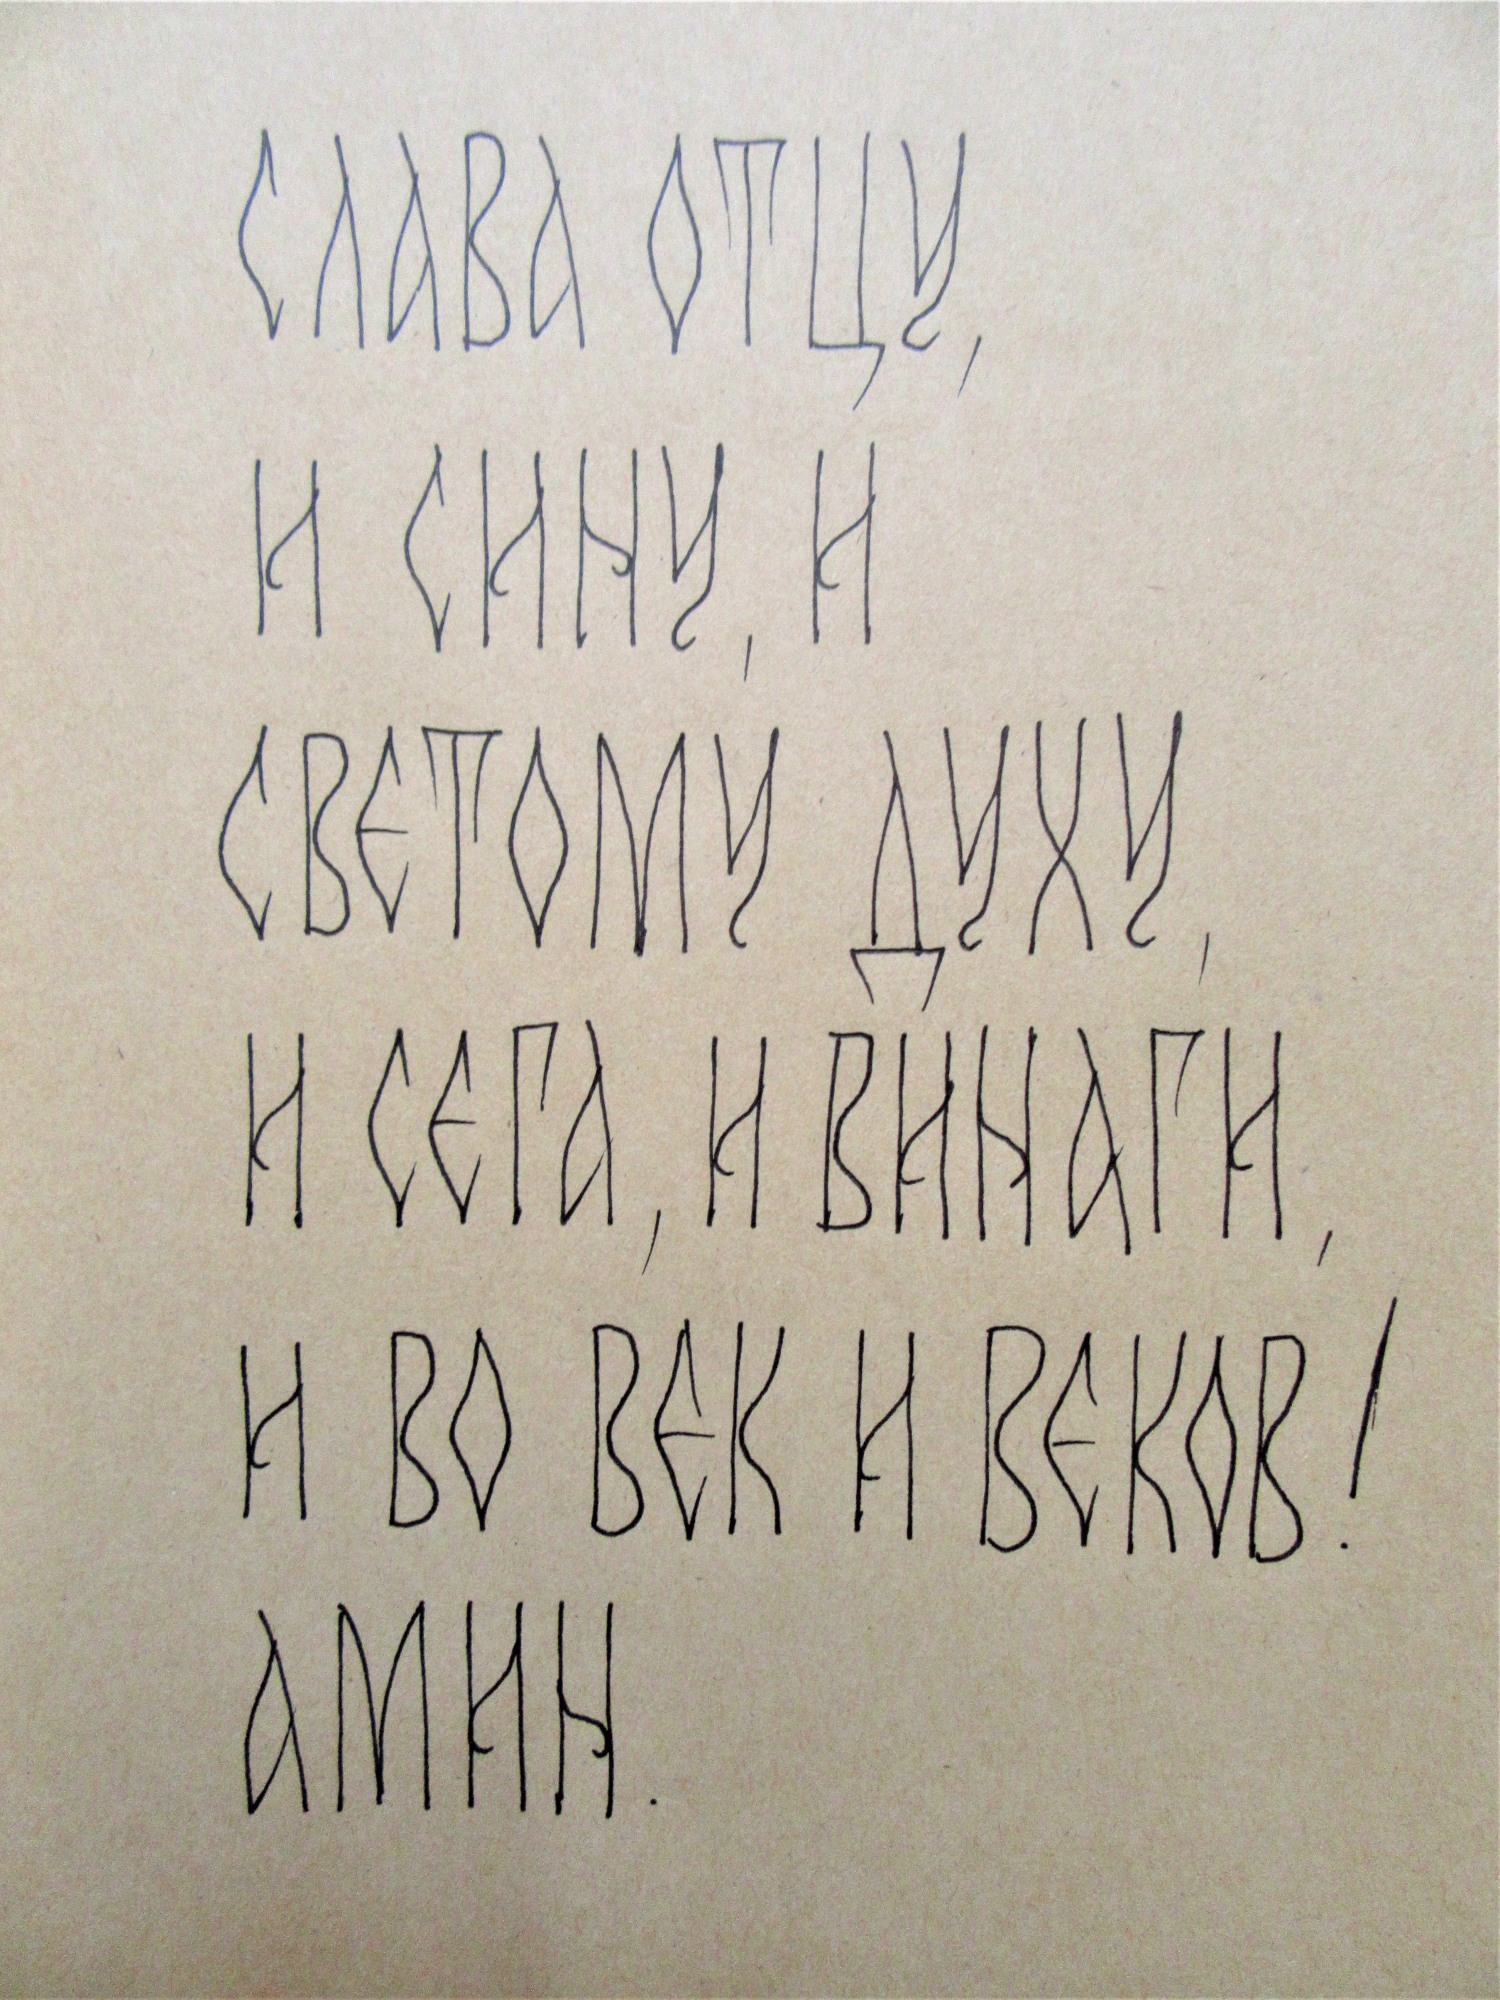 СЛАВА ОТЦУ,
И СИНУ, И
СВЕТОМУ ДУХУ,
И СЕГА, И ВИНАГИ,
И ВО ВЕК И ВЕКОВ!
АМИН.